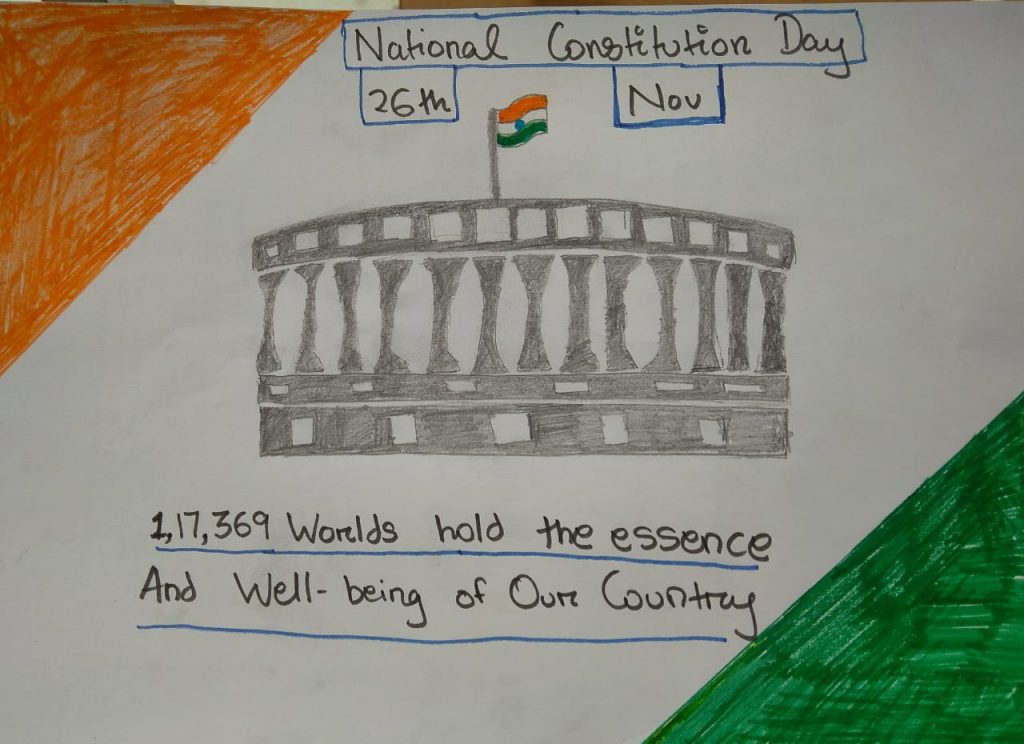 National Constitution Day
26th Nov
1,17,369 Worlds hold the essence
And Well-being of Our Country